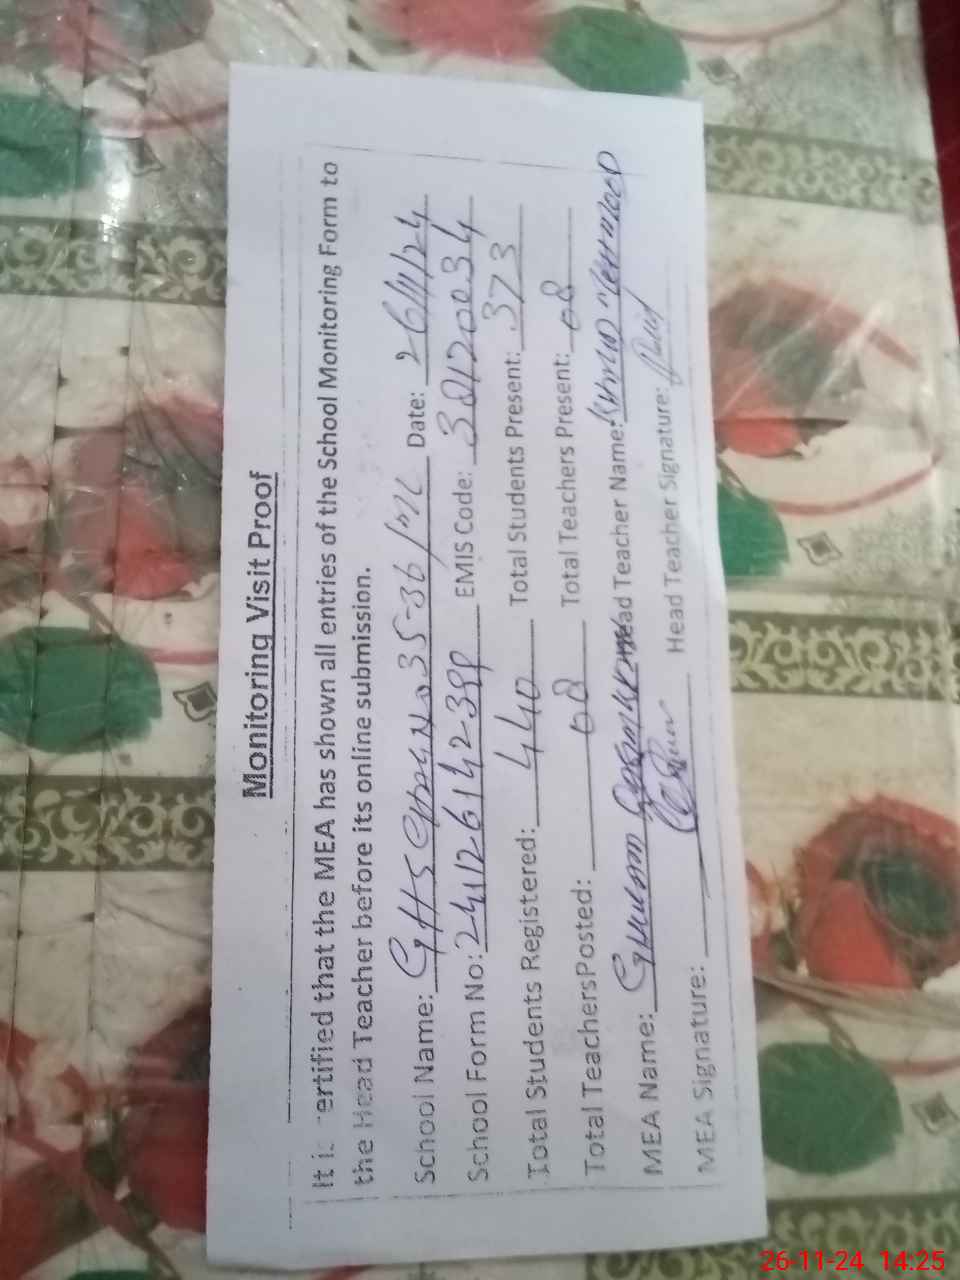 Monitoring Visit Proof
It is certified that the MEA has shown all entries of the School Monitoring Form to
the Head Teacher before its online submission.
School Name: GHS No 35-36/ML Date: 26/11/24
School Form No: EMIS Code: 38120034
Total Students Registered: 440 Total Students Present: 373
Total TeachersPosted: 08 Total Teachers Present: 08
MEA Name: Head Teacher Name:
MEA Signature: Head Teacher Signature:
26-11-24 14:25